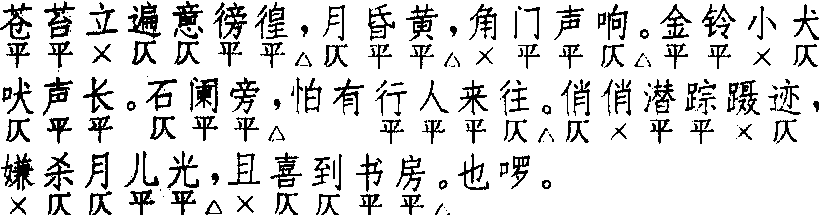 苍苔立遍意徬徨，月昏黄，角门声响。金铃小犬
平平×仄仄平平△仄平平△×平平仄△平平×仄
吠声长。石阑旁，怕有行人来往。俏俏潜踪蹑迹，
仄平平 仄平平△ 平平平仄△仄×平平×仄
嫌杀月儿光，且喜到书房。也啰。
×仄仄平平△×仄仄平平△